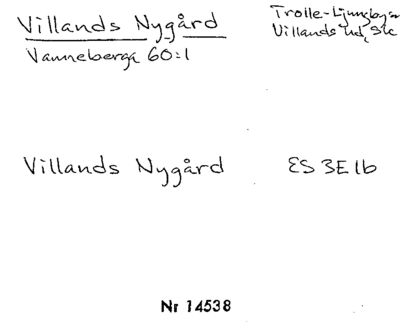 Villands Nygård
Trolle-Ljungby sn
Villands hd, Sk
Vanneberga 60:1
Villands Nygård
ES 3E 1b
Nr 14538